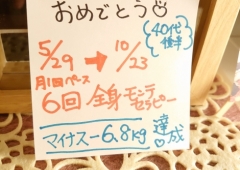 おめでとう
40代後半
5/29 → 10/23
月1回ペース
6回 全身モンテセラピー
マイナスー6.8kg 達成